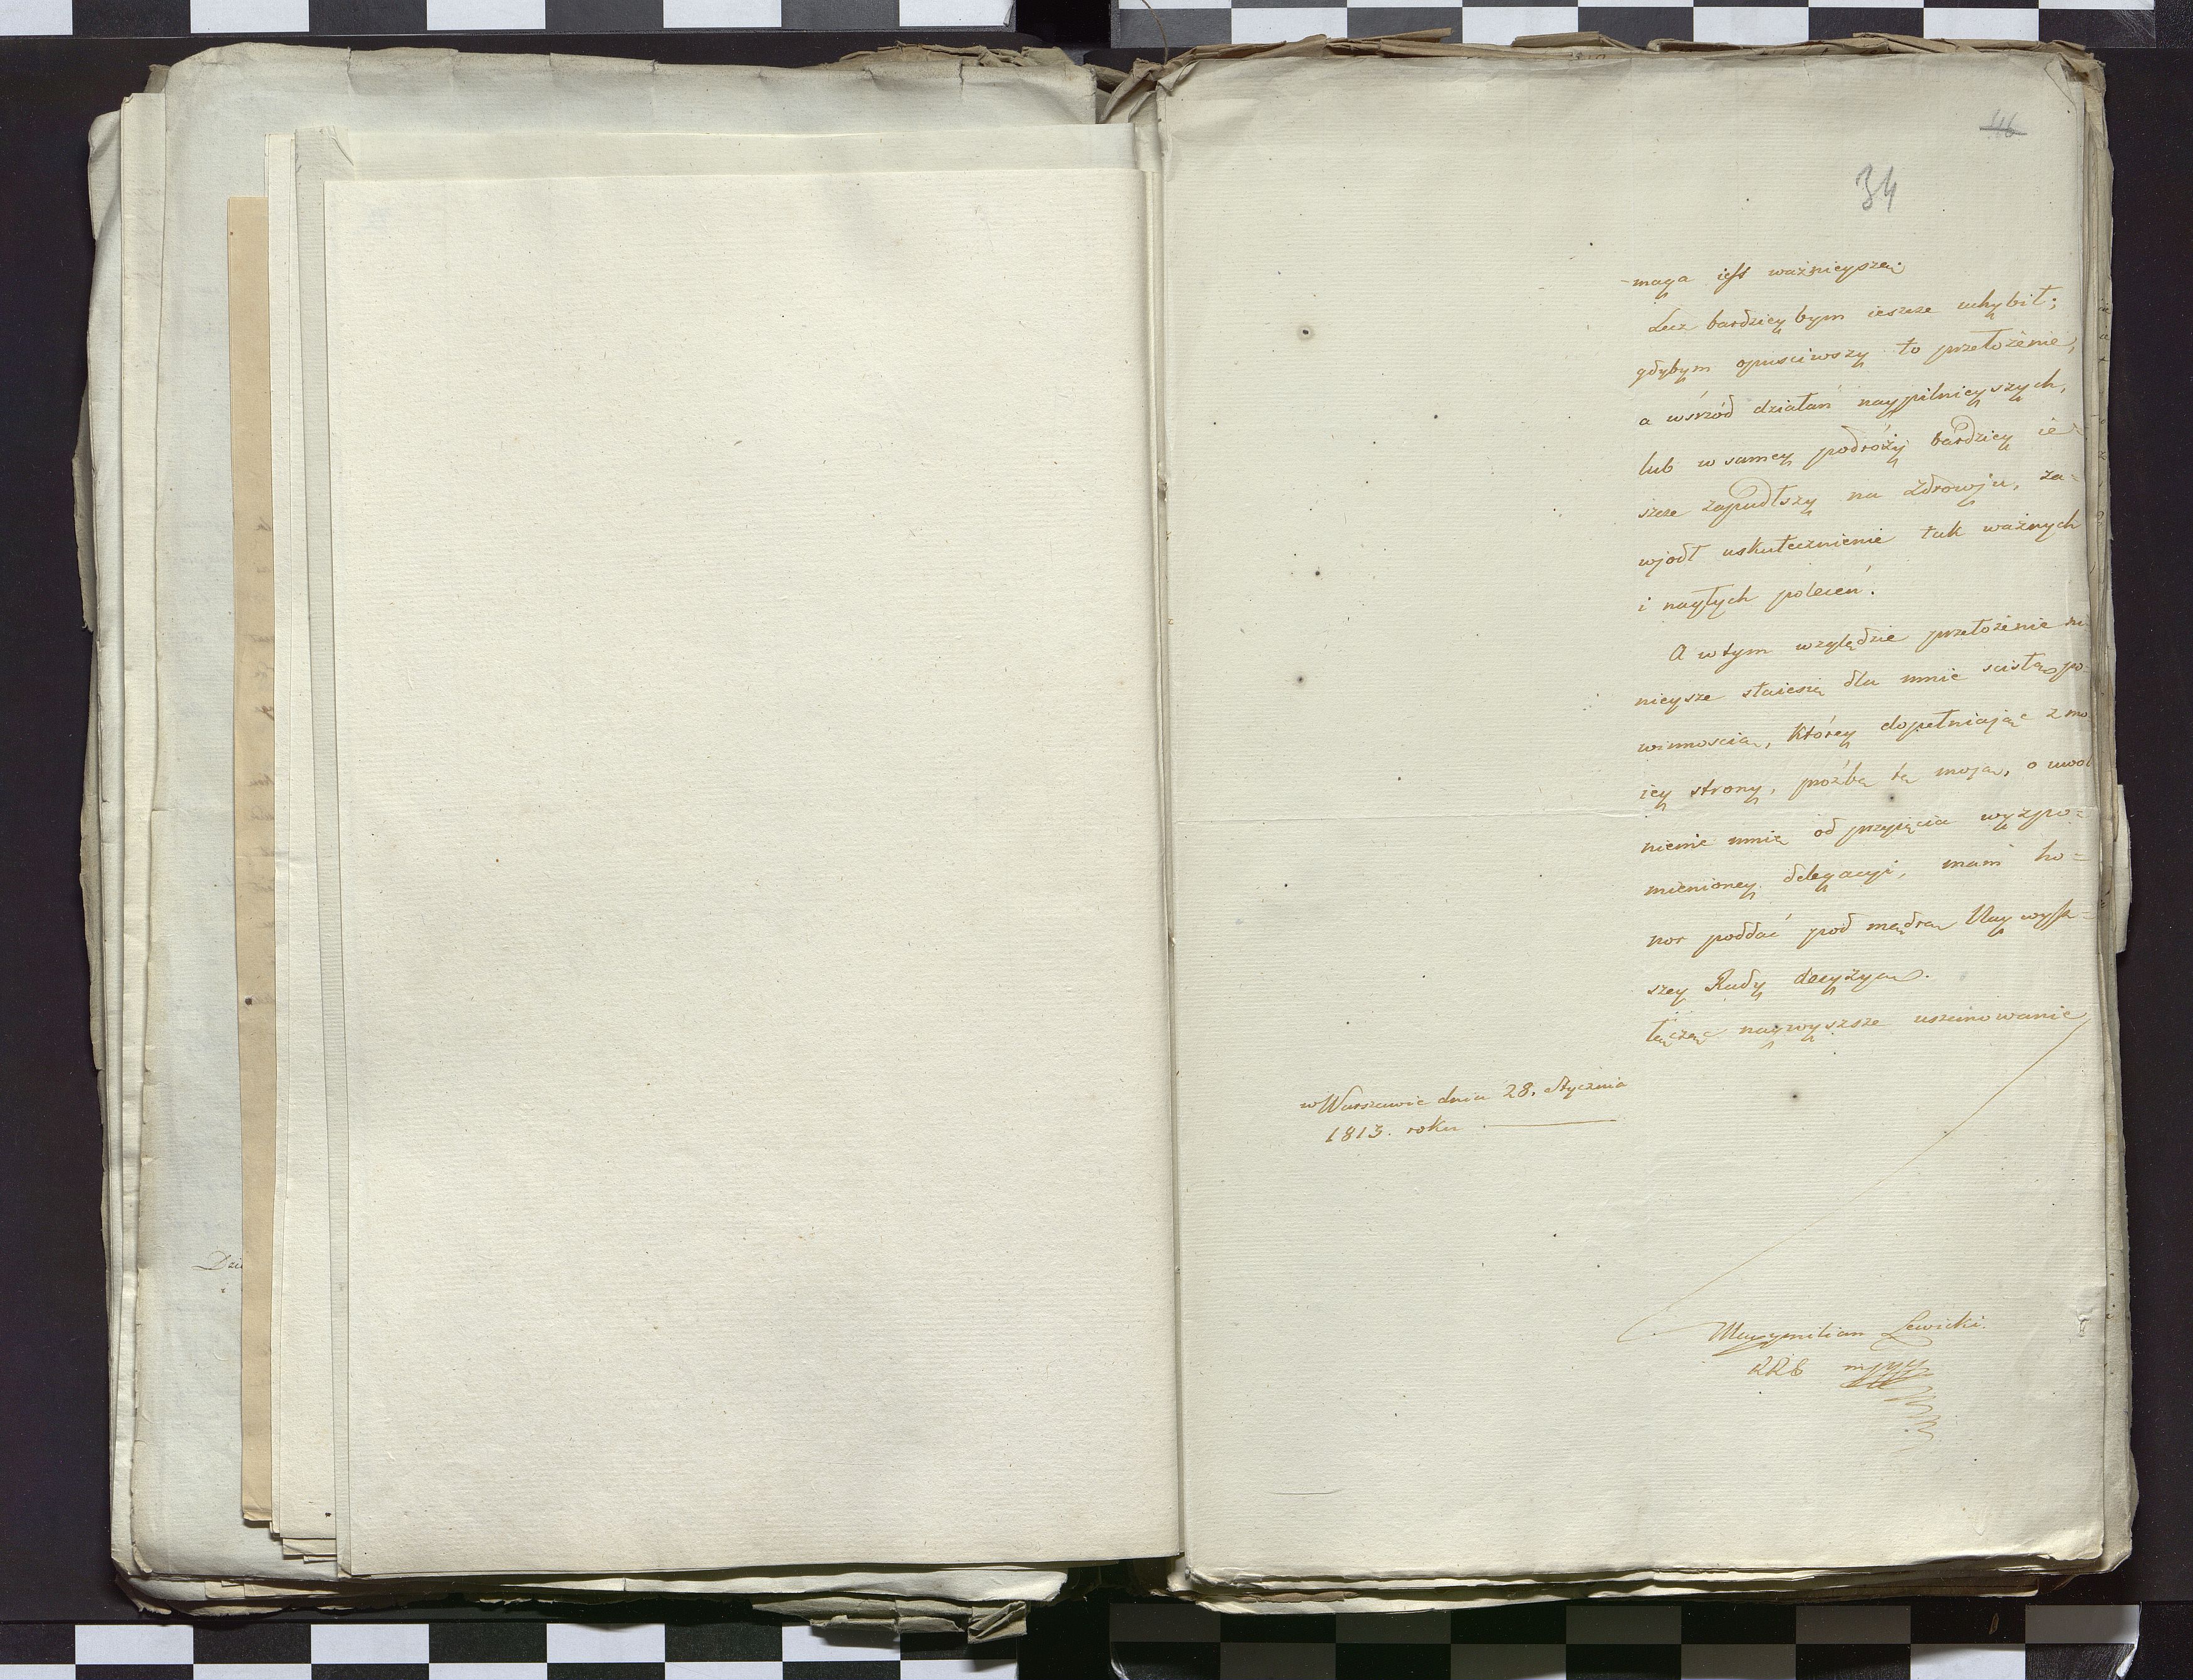 116
34
-maga iest ważnieyszą;
Lecz bardziey bym ieszcze uchybił;
gdybym opusciwszy to przełożenie,
a wśrzód działań naypilnieyszych,
lub w samey podróży bardziey ie=
szcze zapadłszy na zdrowju, za=
wjodł uskutecznienie tak ważnych
i nagłych poleceń.
A wtym względzie przełożenie ni=
nieysze staiesię dla mnie scisłą po=
winnoscią, którey dopełniaiąc z mo
iey strony, proźbę tę moją, o uwol
nienie mnie od przyięcia wyżpo=
mienioney delegacyi, mam ho=
nor poddać pod mądrą Nay wyż=
szey Rady decyzyą.
łącząc naywyższe uszanowanie
w Warszawie dnia 28. Stycznia
1813. roku.
Maxymilian Lewicki.
RRS mpp
Dzi